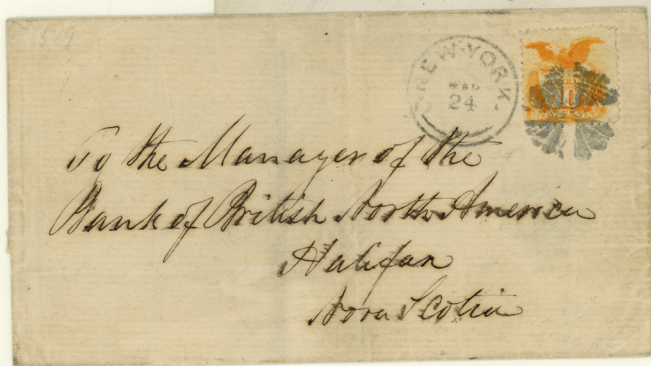 NEW-YORK
24
10
To the Manager of the
Bank of British North America
Halifax
Nova Scotia